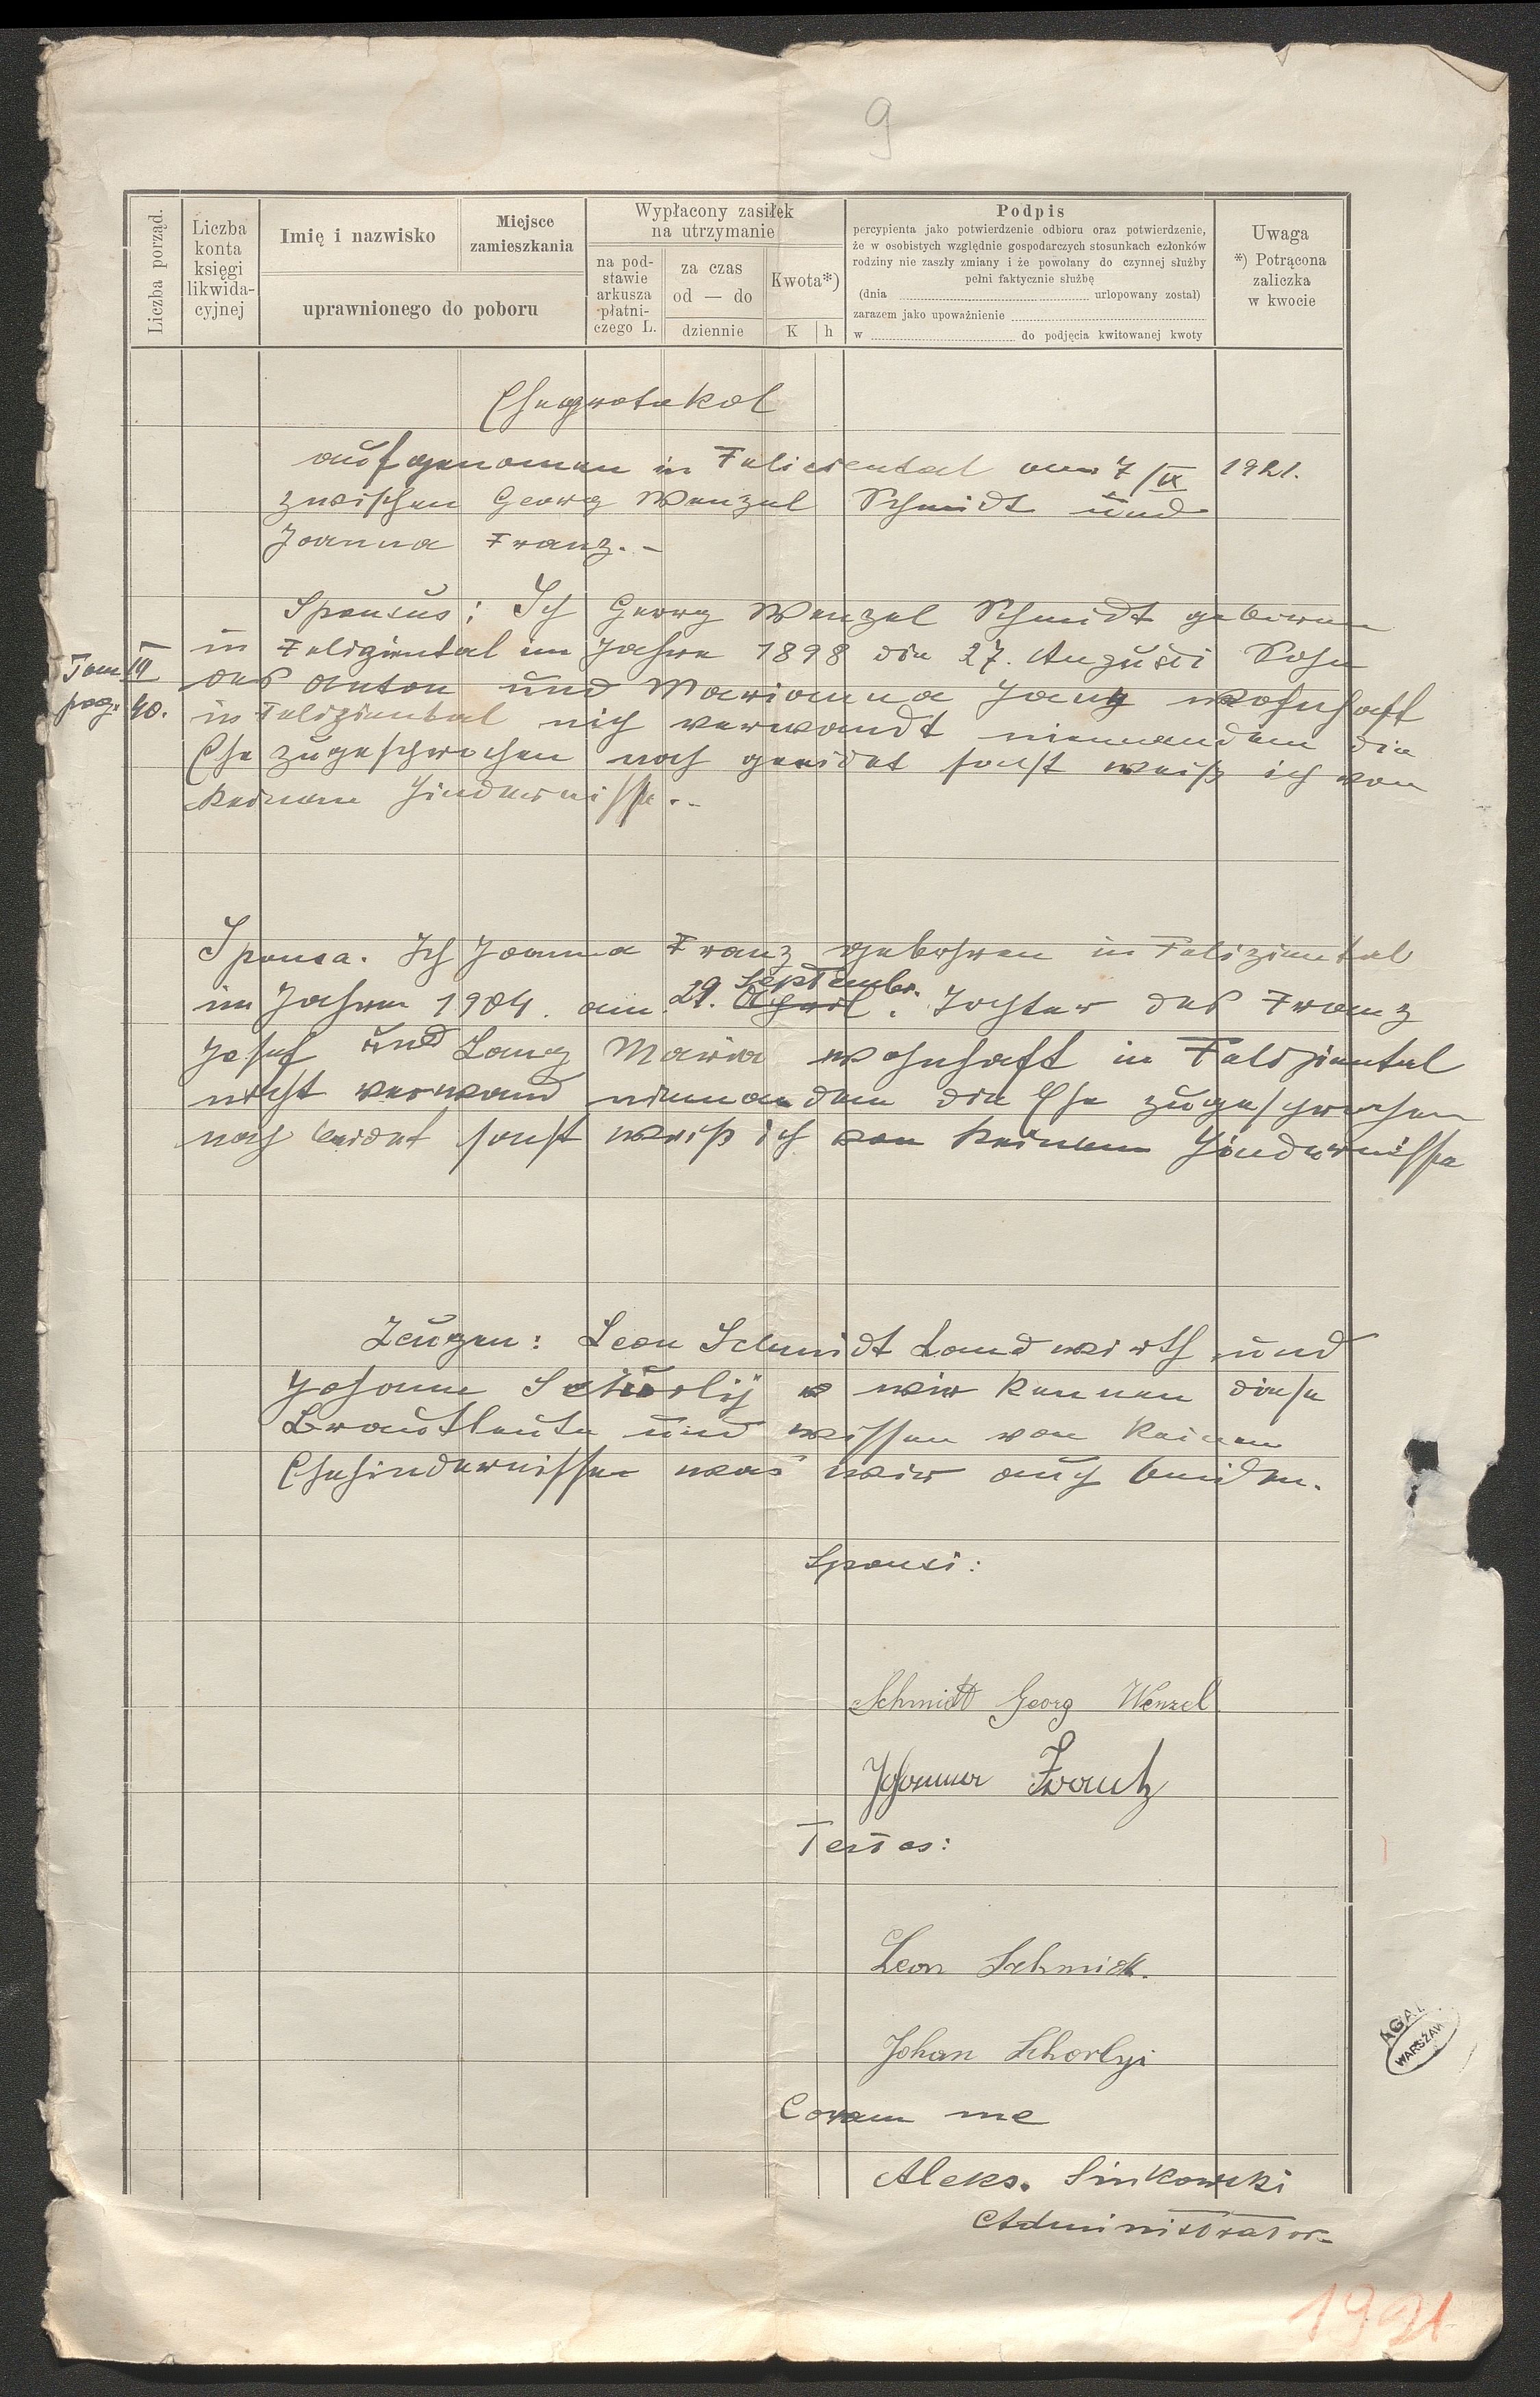 9
Liczba porząd.
Liczba konta księgi likwida- cyjnej
Imię i nazwisko
Miejsce zamieszkania
uprawnionego do poboru
Wypłacony zasiłek na utrzymanie
na pod- stawie arkusza płatni- czego L.
za czas od — do
dziennie
Kwota*)
K h
Podpis
percypienta jako potwierdzenie odbioru oraz potwierdzenie,
że w osobistych względnie gospodarczych stosunkach członków
rodziny nie zaszły zmiany i że powołany do czynnej służby
pełni faktycznie służbę
(dnia urlopowany został)
zarazem jako upoważnienie
w do podjęcia kwitowanej kwoty
Uwaga
*) Potrącona zaliczka w kwocie
Eheprotokol
aufgenomen in Feliciental am 7/IX 1921.
zwischen Georg Wenzel Schmidt und
Joanna Franz. -
Sponsus: Ich Georg Wenzel Schmidt geboren
in Feliziental im Jahre 1898 die 27. Augusti Sohn
Tom III
pag. 40.
des Anton und Marianna Jang wohnhaft
in Feliziental nich verwandt niemandem die
Ehe zugesprochen noch geeidet sonst weiß ich von
keinem Hindernisse. -
Sponsa. Ich Joanna Franz gebohren in Feliziental
im Jahre 1904. am 29. September. Tochter des Franz
Josef und Lang Maria wohnhaft in Feliziental
nicht verwand niemandem die Ehe zugesprochen
noch beidet sonst weiß ich von keinem Hindernisse
Zeugen: Leon Schmidt Landwirth und
Johann Schörlij wir kennen diese
Brautleute und wissen von keinen
Ehehindernissen was wir auch beiden.
Sponsi:
Schmidt Georg Wenzel
Johanna Frantz
Testes:
Leon Schmidt.
Johan Schorlyi
Coram me
Aleks. Sinkowski
Administrator
AGAD
WARSZAW
1921